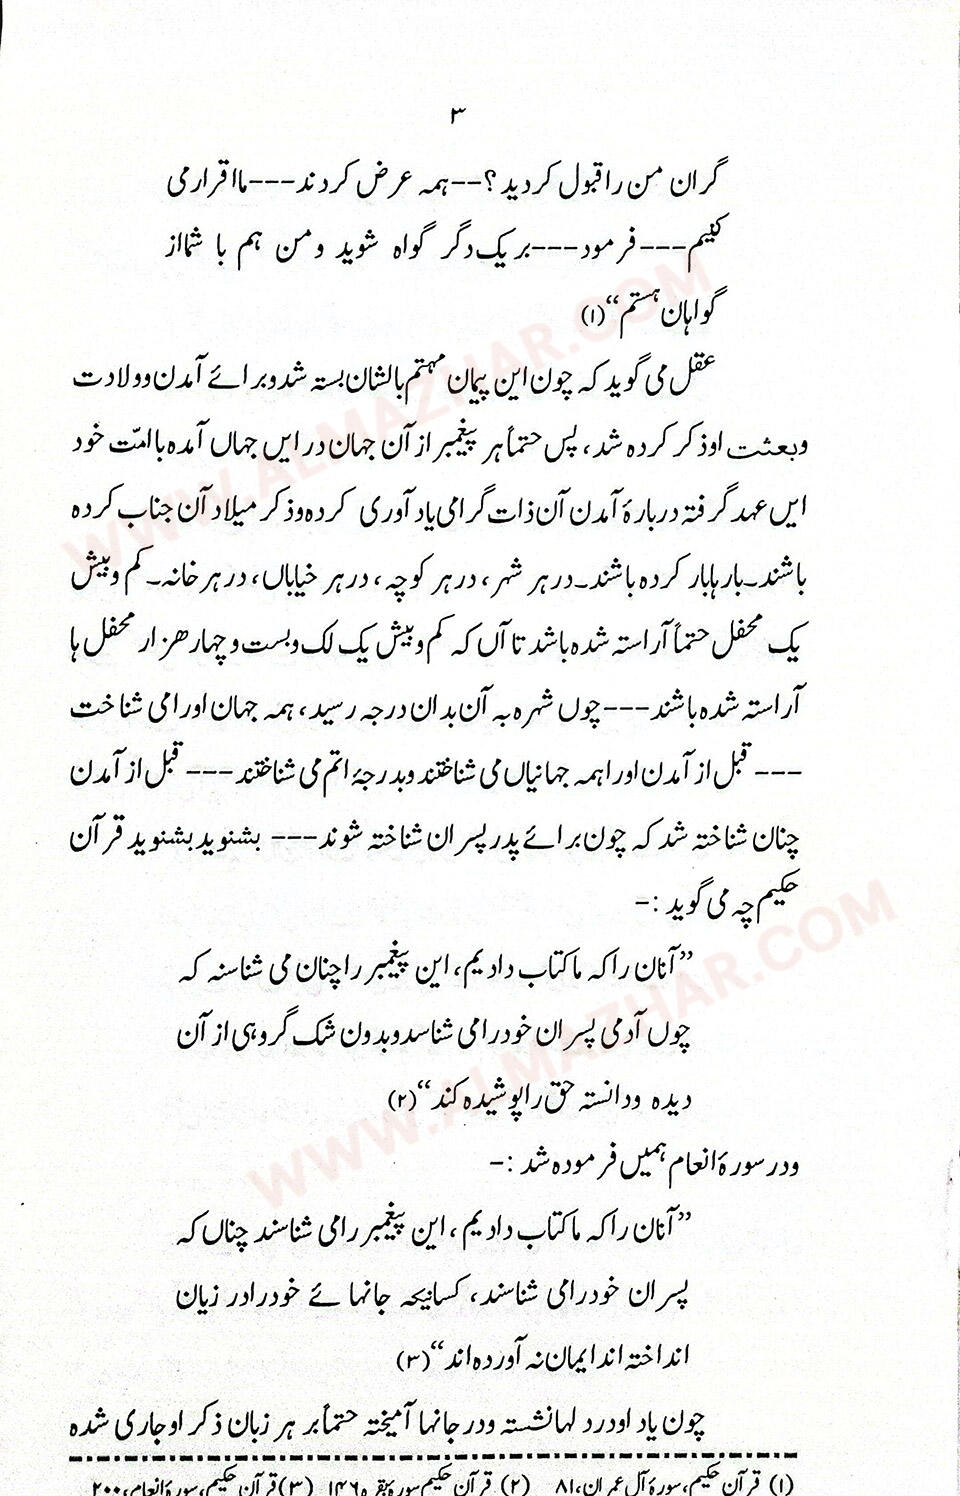 ۳
گران من را قبول کردید ؟--ہمہ عرض کردند---ما اقرار می
کنیم---فرمود---بریک دگر گواہ شوید ومن ہم با شما از
گواہان ہستم“(۱)
عقل می گوید کہ چون این پیمان مہتم بالشان بستہ شد و برائے آمدن وولادت
وبعثت او ذکر کردہ شد، پس حتماً ہر پیغمبر از آن جہان در ایں جہاں آمدہ با امّت خود
ایں عہد گرفتہ دربارۂ آمدن آن ذات گرامی یاد آوری کردہ وذکر میلاد آن جناب کردہ
باشند۔ بارہا بار کردہ باشند۔ در ہر شہر ، در ہر کوچہ ، در ہر خیاباں، در ہر خانہ۔ کم وبیش
یک محفل حتماً آراستہ شدہ باشد تا آں کہ کم وبیش یک لک وبست وچہار ھزار محفل ہا
آراستہ شدہ باشند---چوں شہرہ بہ آن بدان درجہ رسید، ہمہ جہان اورا می شناخت
---قبل از آمدن اورا ہمہ جہانیاں می شناختند وبدرجۂ اتم می شناختند---قبل از آمدن
چنان شناختہ شد کہ چون برائے پدر پسران شناختہ شوند---بشنوید بشنوید قرآن
حکیم چہ می گوید :-
”آنان را کہ ما کتاب دادیم، این پیغمبر را چنان می شناسنہ کہ
چوں آدمی پسران خود را می شناسد وبدون شک گروہی از آن
دیدہ ودانستہ حق را پوشیدہ کند“(۲)
ودر سورۂ انعام ہمیں فرمودہ شد :-
”آنان را کہ ما کتاب دادیم، این پیغمبر را می شناسند چناں کہ
پسران خود را می شناسند، کسانیکہ جانہائے خود را در زیان
انداختہ اند ایمان نہ آوردہ اند“(۳)
چون یاد او در دلہا نشستہ ودر جانہا آمیختہ حتماً بر ہر زبان ذکر او جاری شدہ
(۱) قرآن حکیم، سورۂ آل عمران، ۸۱ (۲) قرآن حکیم سورۂ بقرہ ۱۴۶ (۳) قرآن حکیم، سورۂ انعام، ۲۰۰
WWW.ALMAZHAR.COM
WWW.ALMAZHAR.COM